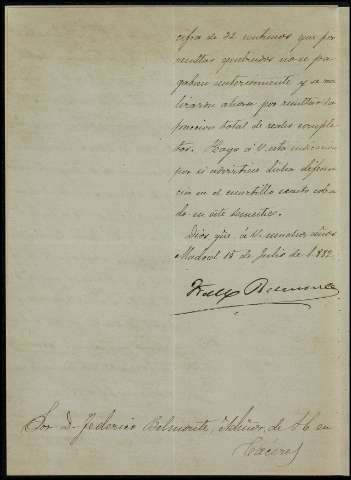 cifra de 32 centimos que por
resultar quebrados no se pa
gaban anteriormente y se rea
lizarán ahora por resultar la
porcion total de reales comple
tos. Hago á V. esta indicacion
por si advirtiere dicha diferen
cia en el cuartillo exacto cobra
do en este semestre.
Dios gûe. á V. muchos años
Madrid 15 de Julio de 1.882.
Belmonte
Sor. D. Federico Belmonte, Admor. de H en
Cáceres